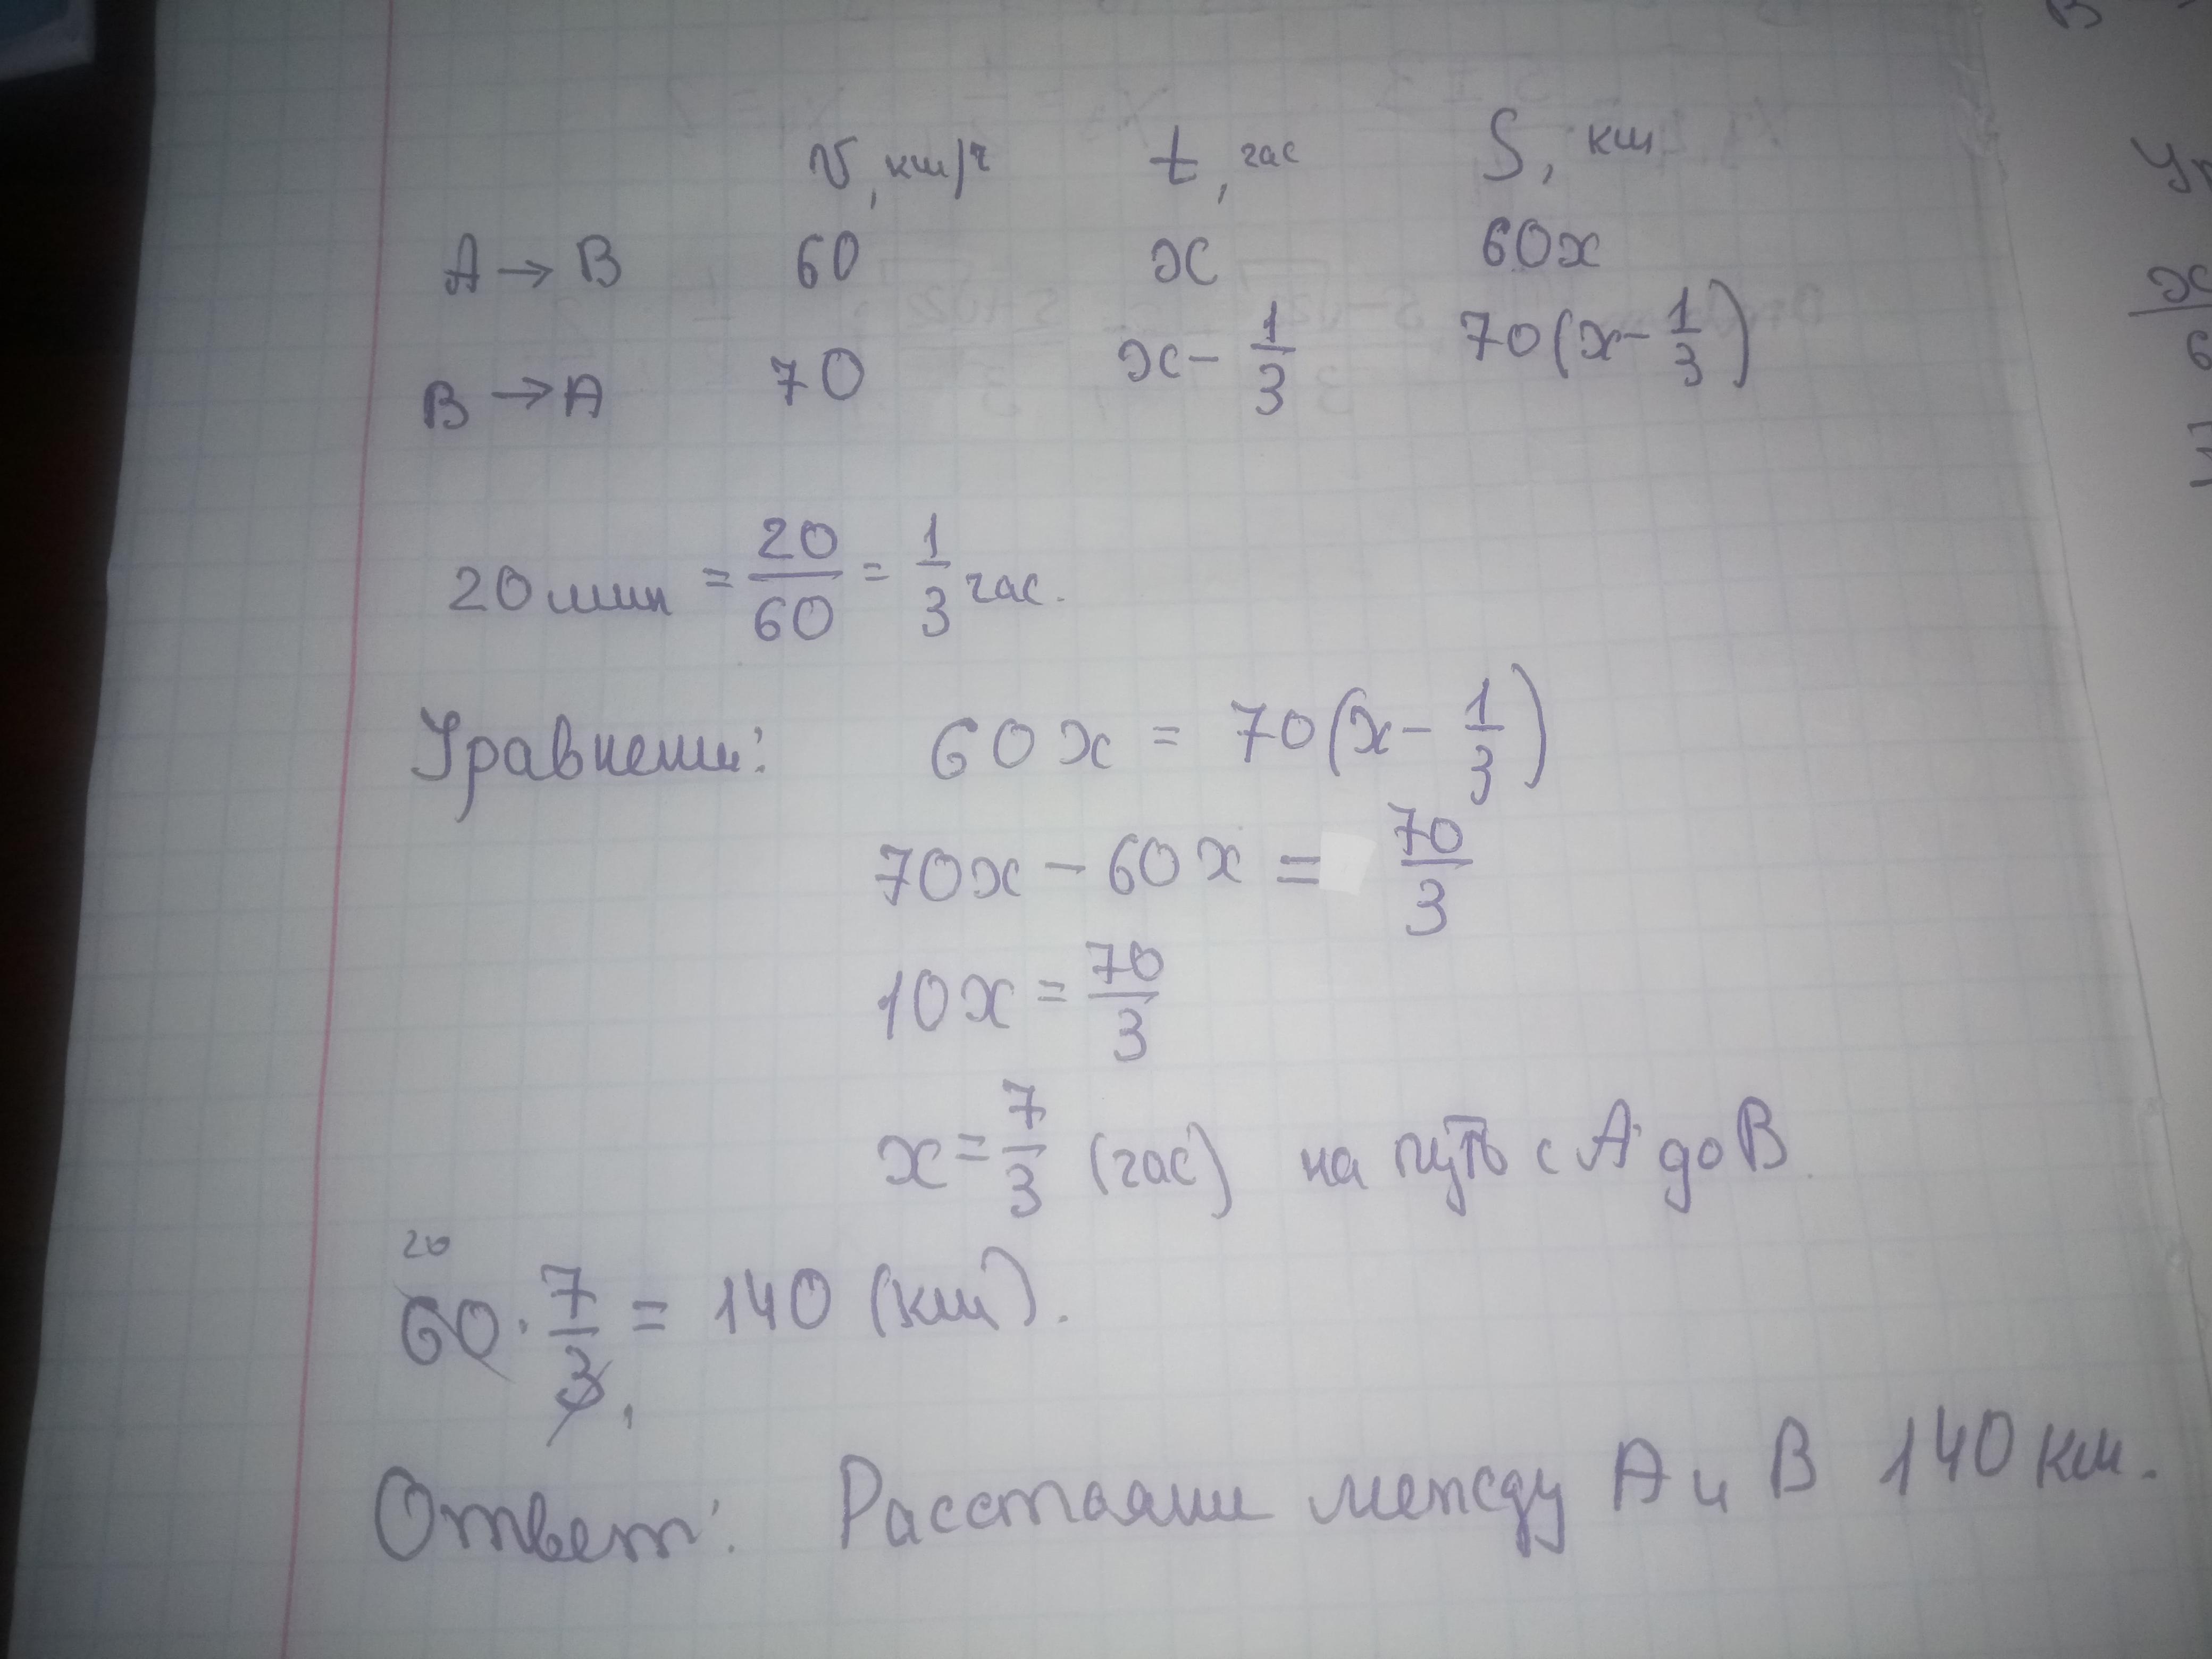 v, км/ч t, час S, км
A → B 60 x 60x
B → A 70 x - 1/3 70(x - 1/3)
20 мин = 20/60 = 1/3 час.
Уравнении: 60x = 70(x - 1/3)
70x - 60x = 70/3
10x = 70/3
x = 7/3 (час) на путь с A до B.
20
60 · 7/3 = 140 (км).
1
Ответ: Расстояние между A и B 140 км.